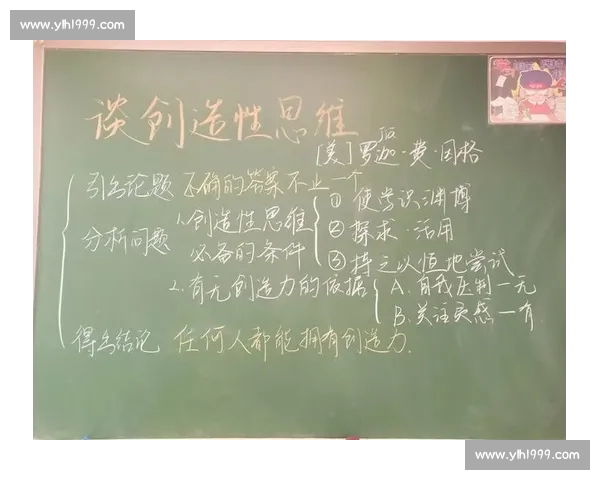 www.ylh1999.com
谈创造性思维
jiā
[美]罗迦·费·因格
引出论题 正确的答案不止一个
分析问题 1.创造性思维必备的条件
① 使学识渊博
② 探求·活用
③ 持之以恒地尝试
2.有无创造力的依据
A.自我压制—无
B.关注灵感—有
得出结论 任何人都能拥有创造力.
www.ylh1999.com